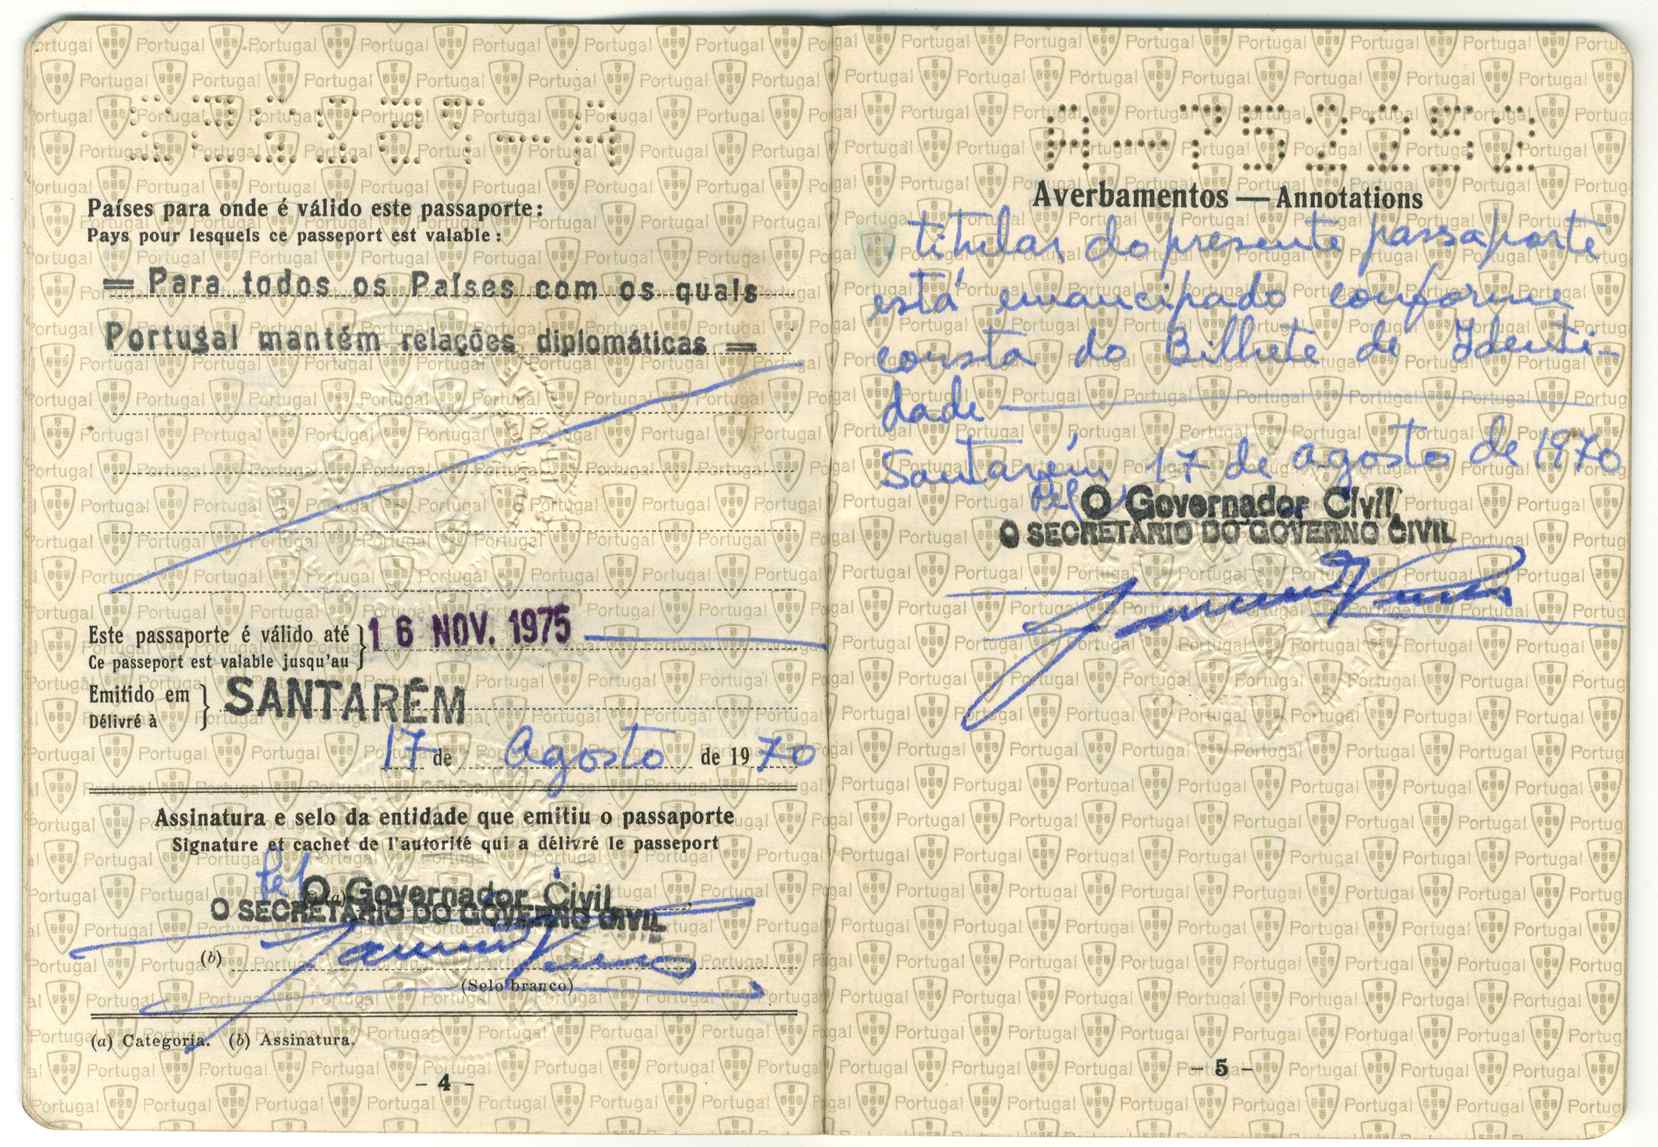 Países para onde é válido este passaporte:
Pays pour lesquels ce passeport est valable:
= Para todos os Países com os quais
Portugal mantém relações diplomáticas =
Este passaporte é válido até } 16 NOV. 1975
Ce passeport est valable jusqu'au
Emitido em } SANTARÉM
Délivré à
17 de Agosto de 1970
Assinatura e selo da entidade que emitiu o passaporte
Signature et cachet de l'autorité qui a délivré le passeport
Pel O Governador Civil
(a)
O SECRETÁRIO DO GOVERNO CIVIL
(b)
(Selo branco)
(a) Categoria. (b) Assinatura.
- 4 -
Averbamentos — Annotations
titular do presente passaporte
está emancipado conforme
consta do Bilhete de Identi-
dade
Santarém 17 de agosto de 1970
Pel O Governador Civil
O SECRETÁRIO DO GOVERNO CIVIL
- 5 -